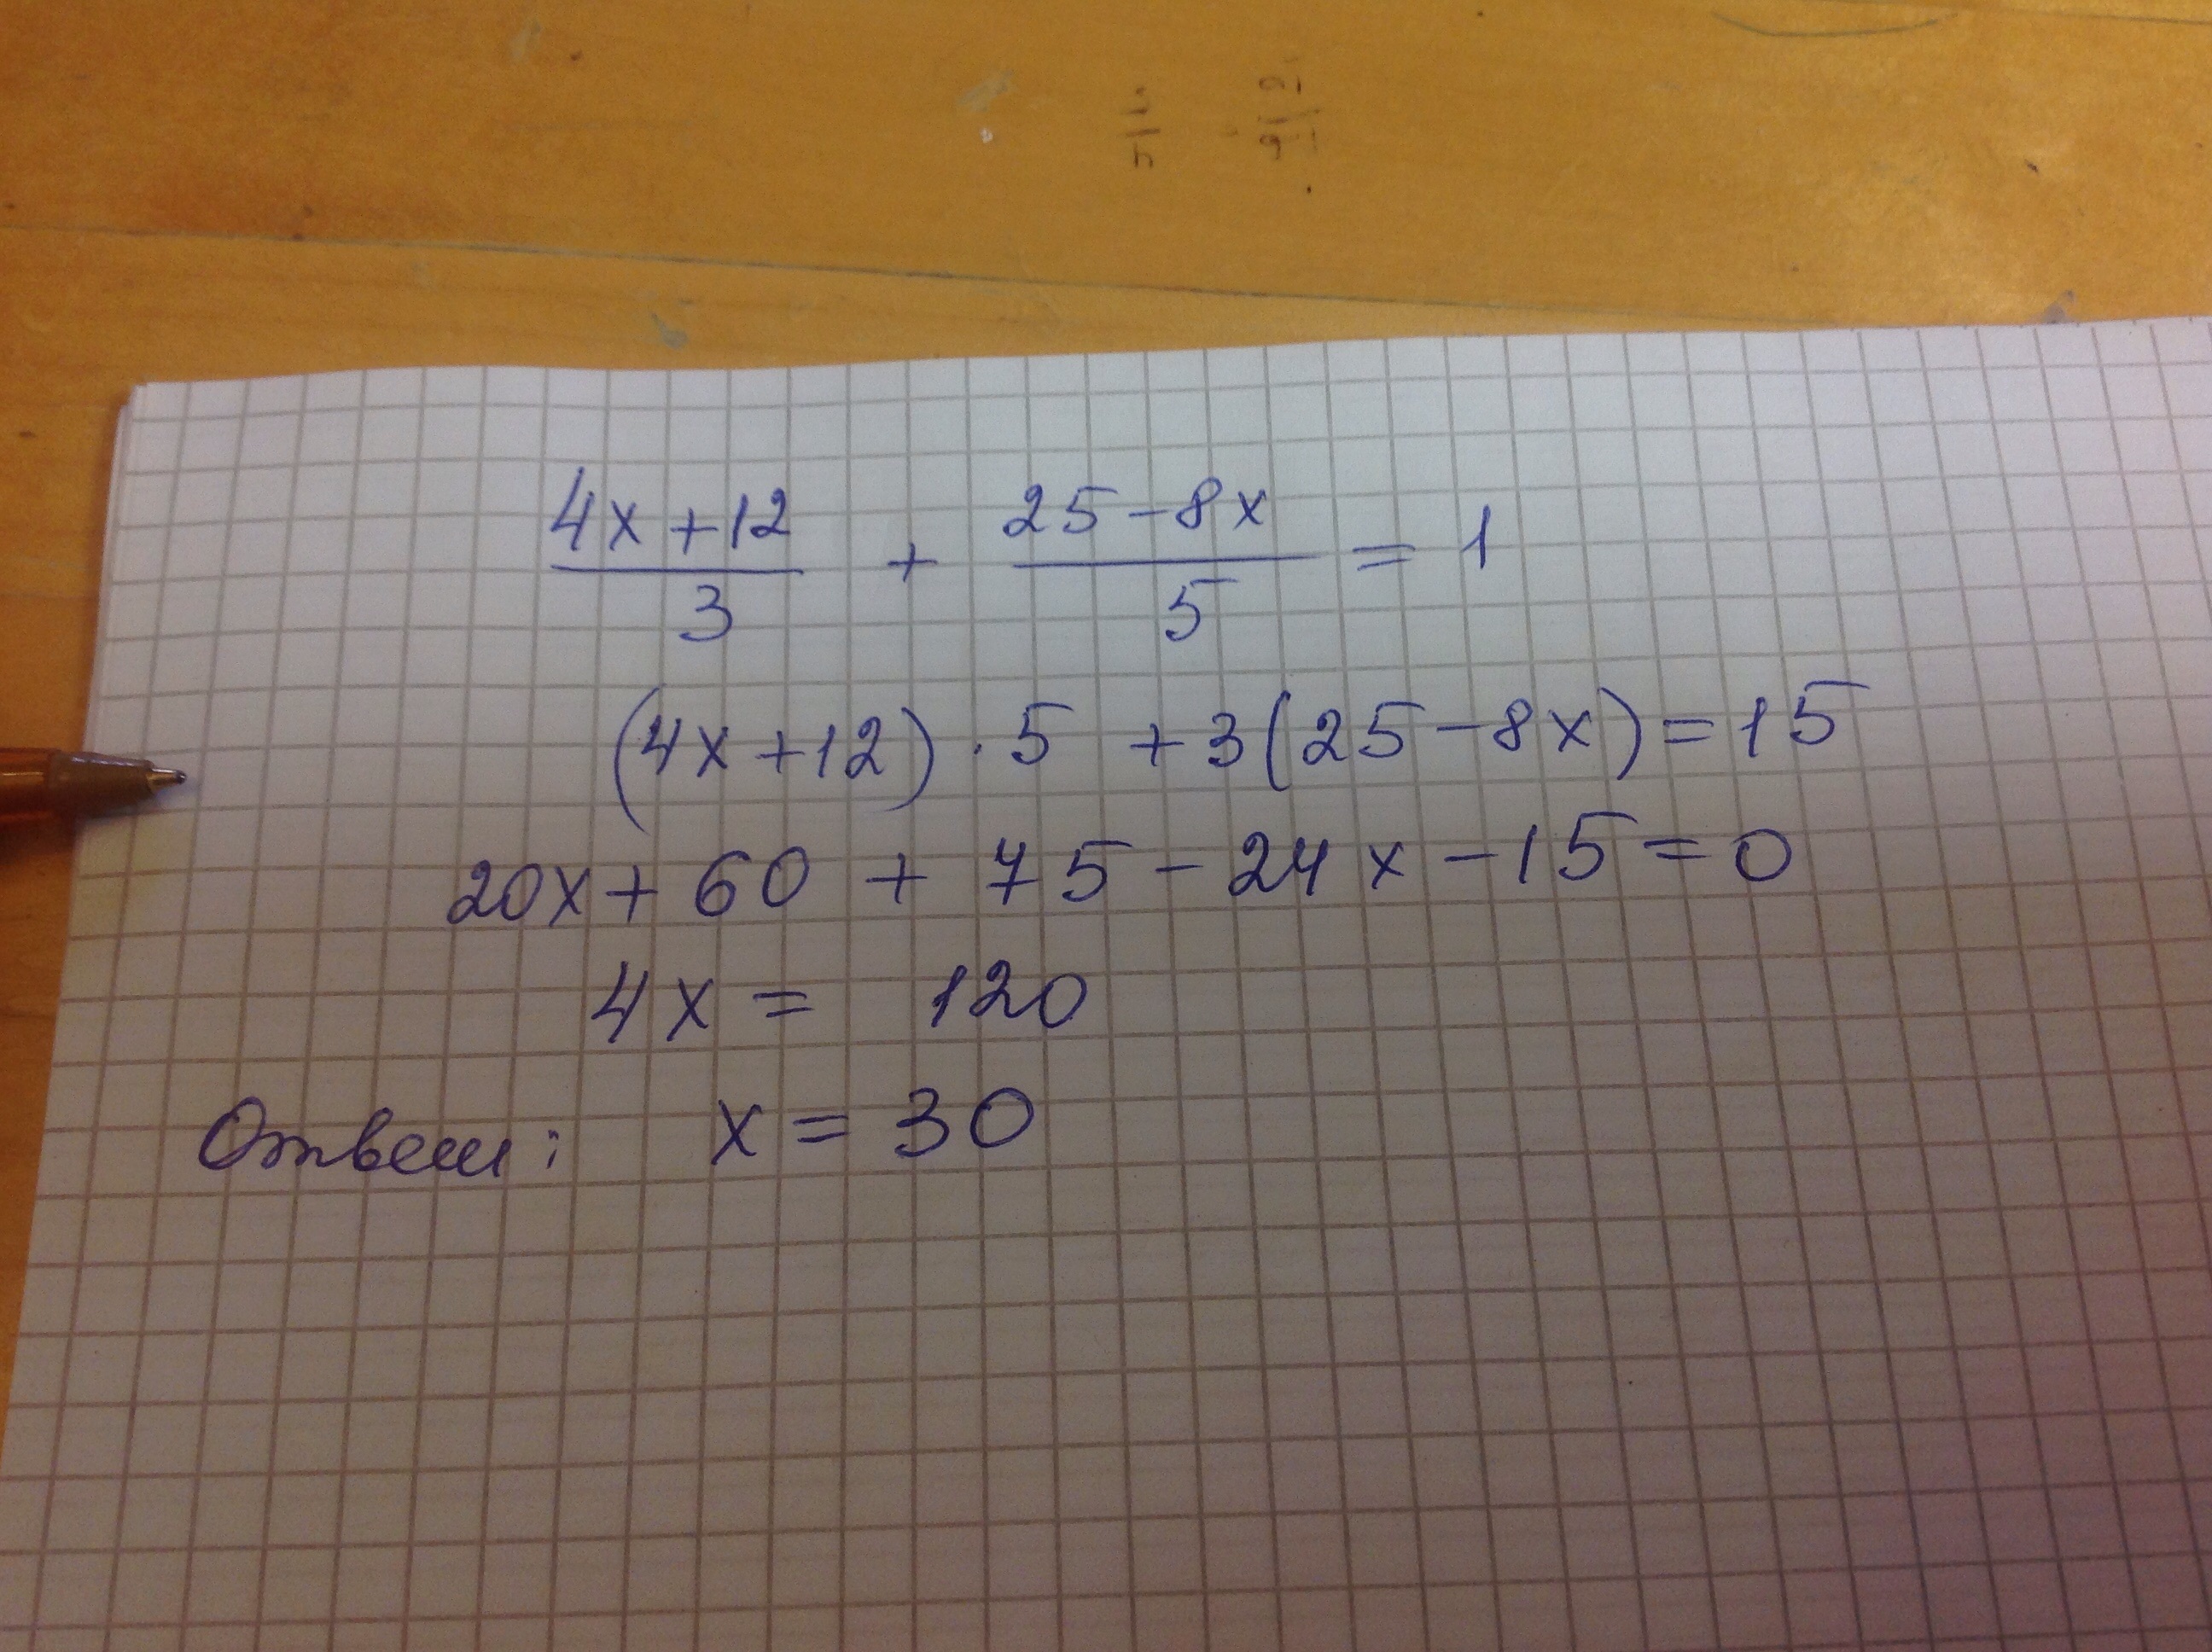 4x+12/3 + 25-8x/5 = 1
(4x+12)·5 +3(25-8x)=15
20x+60+75-24x-15=0
4x = 120
Ответ: x = 30